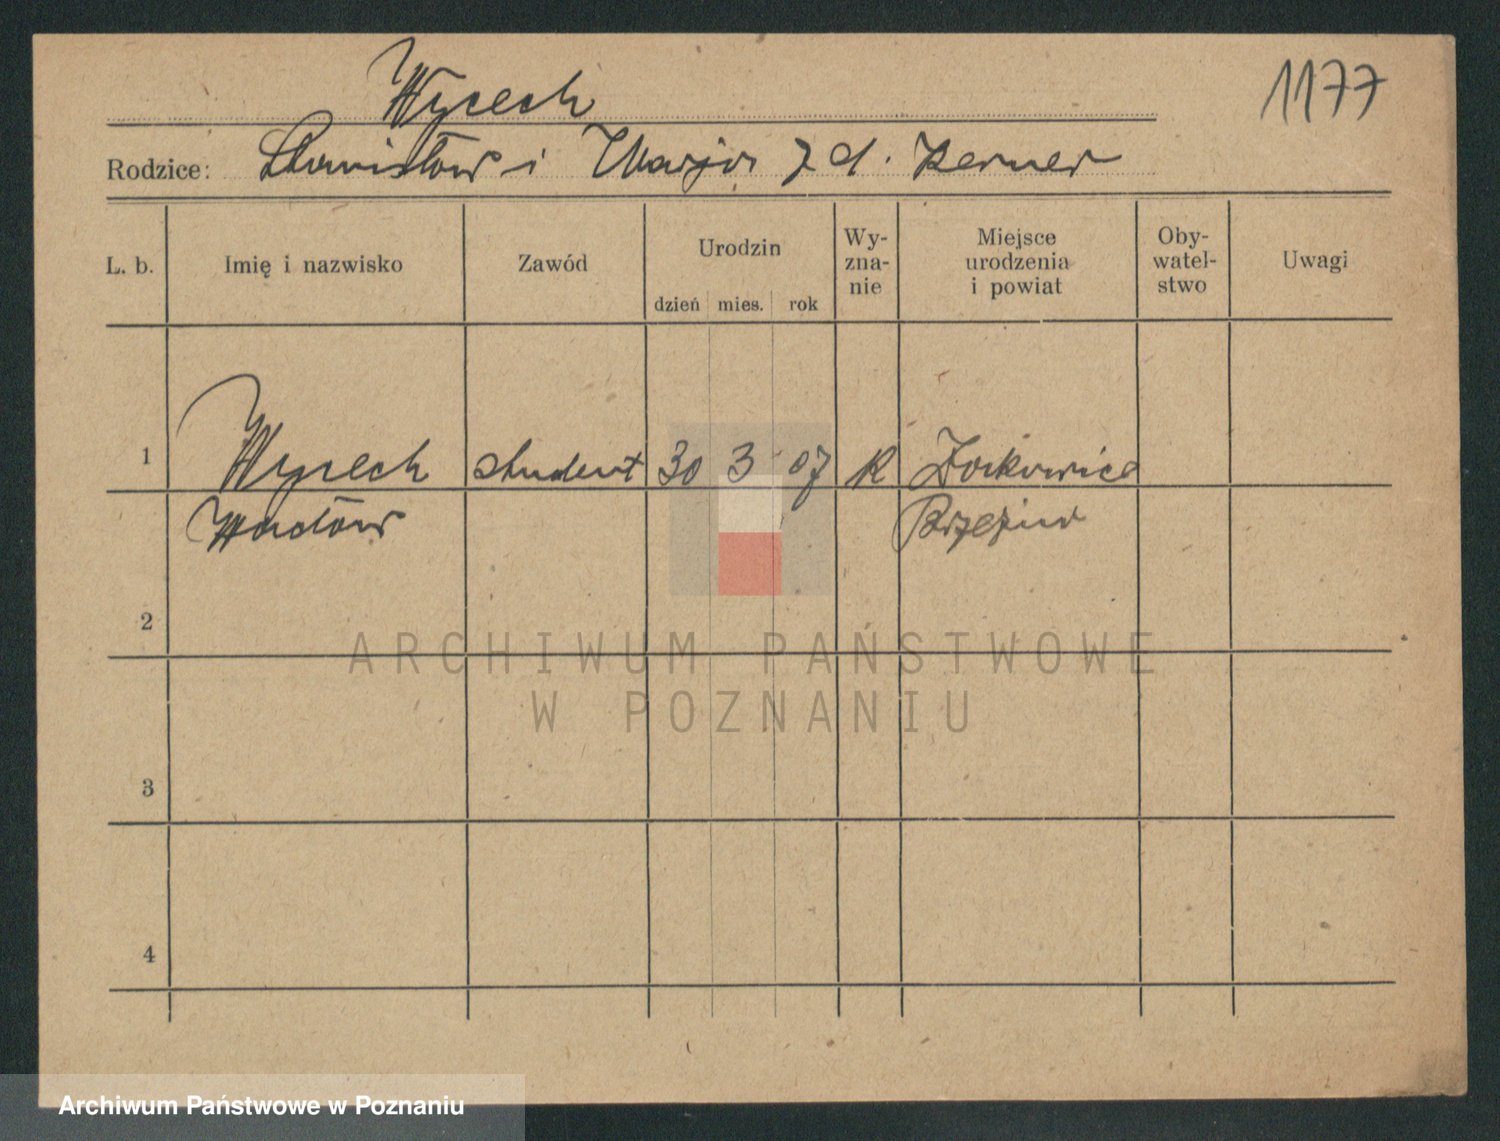 Wycech
1177
Rodzice: Stanisław i Marja z d. Kerner
L. b.
Imię i nazwisko
Zawód
Urodzin
dzień mies. rok
Wy-
zna-
nie
Miejsce
urodzenia
i powiat
Oby-
watel-
stwo
Uwagi
1 Wycech student 30 3 07 R
Wacław Brzeziny
2
3
4
ARCHIWUM PAŃSTWOWE
W POZNANIU
Archiwum Państwowe w Poznaniu